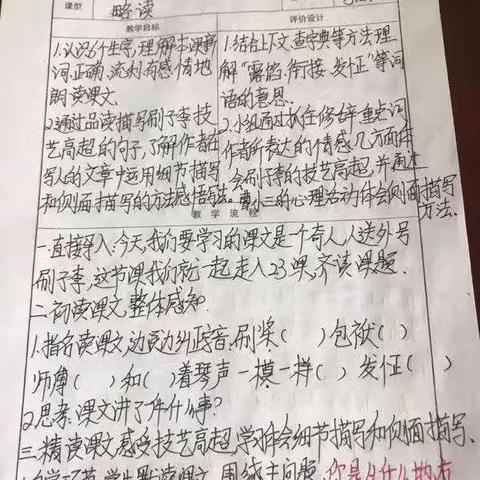 课型
略读
教学目标
评价设计
1.认识6个生字,理解本课新
词.正确、流利、有感情地
朗读课文.
2.通过品读描写刷子李技
艺高超的句子,了解作者在
写人的文章中运用细节描写
和侧面描写的方法感悟写法.
1.结合上下文、查字典等方法,理
解“露馅、衔接、发怔”等词
语的意思.
2.小组通过抓住修辞、重点词
作者所表达的情感几方面体
会刷子李的技艺高超,并通过
曹小三的心理活动体会侧面描写
方法.
教学流程
一.直接导入:今天,我们要学习的课文是个奇人,人送外号
刷子李,这节课我们就一起走入23课,齐读课题.
二.初读课文,整体感知.
1.指名读课文,边读边纠正音.刷浆( ) 包袱( )
师傅( ) 和( )着琴声 一模一样( ) 发怔( )
2.思考:课文讲了件什么事?
三.精读课文,感受技艺高超,学习体会细节描写和侧面描写、
学生默读课文,围绕主问题,你是从什么地方